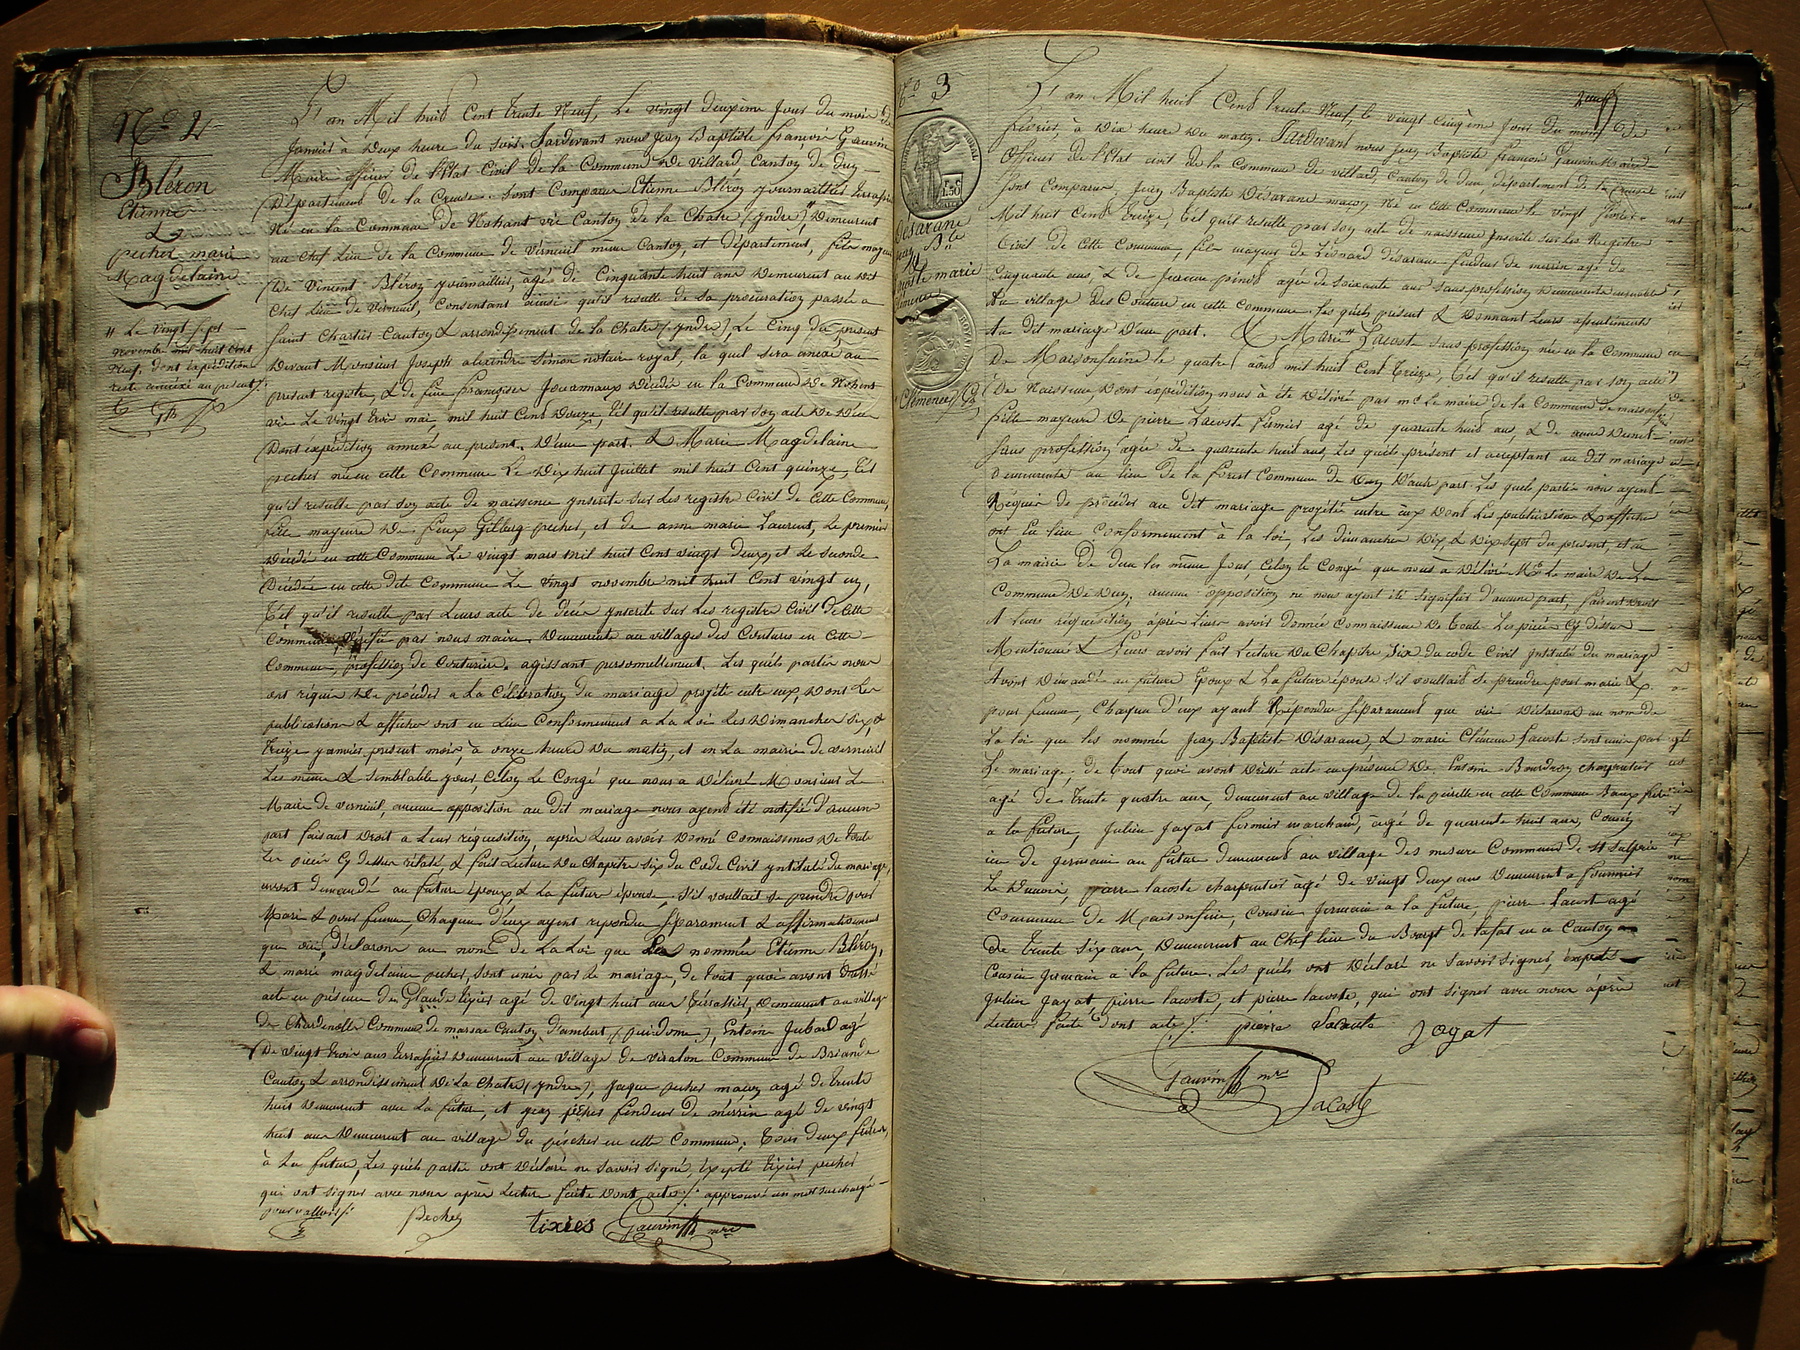 N° 2
Bléron
Etienne
&
pecher marie
Magdelaine
" Le vingt sept
novembre mil huit cent
neuf, dont expédition
reste annexé au présent
L'an Mil huit Cent trente Neuf, Le vingt deuxème Jour du mois de
Janvier à Deux heure du soir. Pardevant nous Jean Baptiste françois Gauvin
Maire officier de l'Etat Civil de la Commune de villard Canton de Dun
Département de la Creuse. Sont Comparu Etienne Bléron journaillier terrassier
Né en la Commune de Nohant vic Canton de la Chatre (yndre) " Demeurent
au Chef Lieu de la Commune de Verneuil même Canton, et département, fils mageur
De Vincent Bléron journaillier, âgé de Cinquante huit ans Demeurent au dit
Chef Lieu de Verneuil, Consentant ainsi qu'il resulte de sa procuration passée a
Saint Chartier Canton & arrondissement de la Chatre (yndre) Le Cinq du présent
Devant Monsieur Joseph alexendre Simon notaire royal, la quel sera annexé au
présent registre, & de feue françoise Jouannaux Décédée en la Commune De Nohent
vic Le vingt troix mai, mil huit Cent Douze, tél qu'il resulte par son acte De Décè
Dont expédition annexé au présent. D'une part. & Marie Magdelaine
pecher née en cette Commune Le Dix huit Juillet mil huit Cent quinze, tél
qu'il resulte par son acte de naissence ynscrite sur Les registre Civil de Cette Commune,
fille mageure De feux Gilberg pecher, et de anne marie Laurent, Le premier
Décédé en cette Commune Le vingt mars mil huit Cent vingt Deux, et Le seconde
Décédée en cette dite Commune Le vingt novembre mil huit Cent vingt un,
tél qu'il resulte par Leurs acte de Décè ynscrite sur Les registre Civil de Cette
Commune, vérifié par nous maire. Demeurente au villages des Coutures en Cette
Commune, profession de Couturière. agissant personnellement. Les quels partie nous
ont réquis De procéder a La Célébration du mariage projété entre eux, Dont Les
publication & afficher ont eu Lieu Conformement a La Loi Les Dimancher six, &
treize janvier présent mois, à onze heure du matin, et en La mairie de verneuil
Les même & semblable jour, Selon Le Congé que nous a Délivré Monsieur Le
Maire de verneuil, aucune opposition au Dit mariage nous ayent été notifié d'aucun
part faisant Droit a Leur réquesition, après Leurs avoir Donné Connaissence De toute
Les pièces Cy dessus relaté, & fait Lecture du Chapitre six du Code Civil yntitulé du mariage,
avont demendé au future époux, & La future épouse, s'il voullait se prendre pour
Mari & pour femme, Chaqun d'eux ayent reponder séparament & affirmativement
que oui, Déclarons au nom de La Loi que Les nommée Etienne Bléron,
& marie magdelaine pecher, sont unie par Le mariage, de tout quoi avons Dressé
acte en présence de Glaude tixier agé de vingt huit ans terrassier, Demeurent au village
De Chardenolle Commune de marsac Canton D'ambert (puidome), Entoine Jubard agé
De vingt troix ans terrassier Demeurent au village de viralon Commune de Briande
Canton & arrondissement De La Chatre (yndre), Jaque pecher maçon agé de trente
huit Demeurent avec La future, et jean péches fendeur de mérrin agé de vingt
huit ans Demeurent au village du péscher en cette Commune. tous Deux frères,
à La future, Les quels partie ont Déclaré ne Savoir signé, éxcepté tixier pecher
qui ont signer avec nous après Lecture faite Dont acte ./. approuvé un mot surchargé
pour valloir/.
Pecher tixiés Gauvin mre
N° 3
desarane
Bte
&
marie
Clémence
2 neuf
L'an Mil huit Cent trente Neuf, le vingt cinqème Jour du mois de
février, à Dix heure du matin. Pardevant nous Jean Baptiste françois Gauvin maire
Officier de l'Etat civil de la Commune de villard Canton de Dun département de la Creuse
Sont Comparu, Jean Baptiste Désarane maçon Né en Cette Commune le vingt février
Mil huit Cent treize, tél qu'il resulte par son acte de naissence ynscrite sur Les Registre
Civil de Cette Commune, fils mageur de Léonard Désarane fendeur de merrin agé de
Cinquante ans, & de Jeanne pinot agée de soixante ans sans profession Demeurente ensemble
au village des Couture en cette Commune. Les quels présent & Donnant Leurs consentements
au dit mariage D'une part. & Marie " Lacoste sans profession née en la Commune
De Maisonfeine le quatre aout mil huit Cent treize, tél qu'il resulte par son acte
De Naissence Dont expédition nous à été Délivré par mr Le maire de la Commune de maisonfe
fille mageure de pierre Lacoste fermier agé de quarente huit ans, & de anne Denet
sans profession agée de quarente huit ans, Les quels présent et acceptant au dit mariage
Demeurente au lieu de la forest Commune de Dun D'autre part. Les quels partie nous ayent
Réquis de procéder au Dit mariage projétée entre eux Dont Les publication & afficher
ont eu lieu Conformement à la loi, Les dimancher Dix & Dix sept du présent, et en
La mairie de Dun les même Jour, Selon le Congé que nous a Délivré Mr Le maire De La
Commune De Dun, aucune opposition ne nous ayent été signifier d'aucune part, faisent Droit
A Leurs réquisition, après Leurs avoir donnée Connaissence De toute Les pièces Cy dessus
Mentionnée & Leurs avoir fait Lecture du Chapitre Six du code Civil yntitulé du mariage
Avont Demendée au future Epoux & La future épouse s'il voullait se prendre pour marie &
pour femme, Chaqun d'eux ayant Répondue séparament que oui Déclarons au nom de
La loi que les nommée Jean Baptiste Désarane, & marie Clémence Lacoste sont unie par
Le mariage, de tout quoi avont Dréssé acte en présence De Entoine Bourdeau charpentier
agé de trente quatre ans, demeurent au village de la peirelle en cette Commune Beaux frère
a la future, Julien Jayat fermier marchand, agé de quarente huit ans, Cousin
issu de germain au future demeurent au village des mesure Commune de St sulpice
Le Dunois, pierre lacoste charpentier agé de vingt deux ans Demeurent a fournier
Commune de Maisonfeine, Cousin germain a la future, pierre Lacost agé
de trente six ans Demeurent au Chef lieu du Bourgt de lafat en ce Canton
Cousin germain a la future. Les quels ont Déclaré ne savoir signer, éxcepté
Julien Jayat, pierre lacoste, et pierre lacoste, qui ont signer avec nous après
Lecture faite Dont acte ./. pierre Lacoste Jayat
Gauvin mre Lacoste